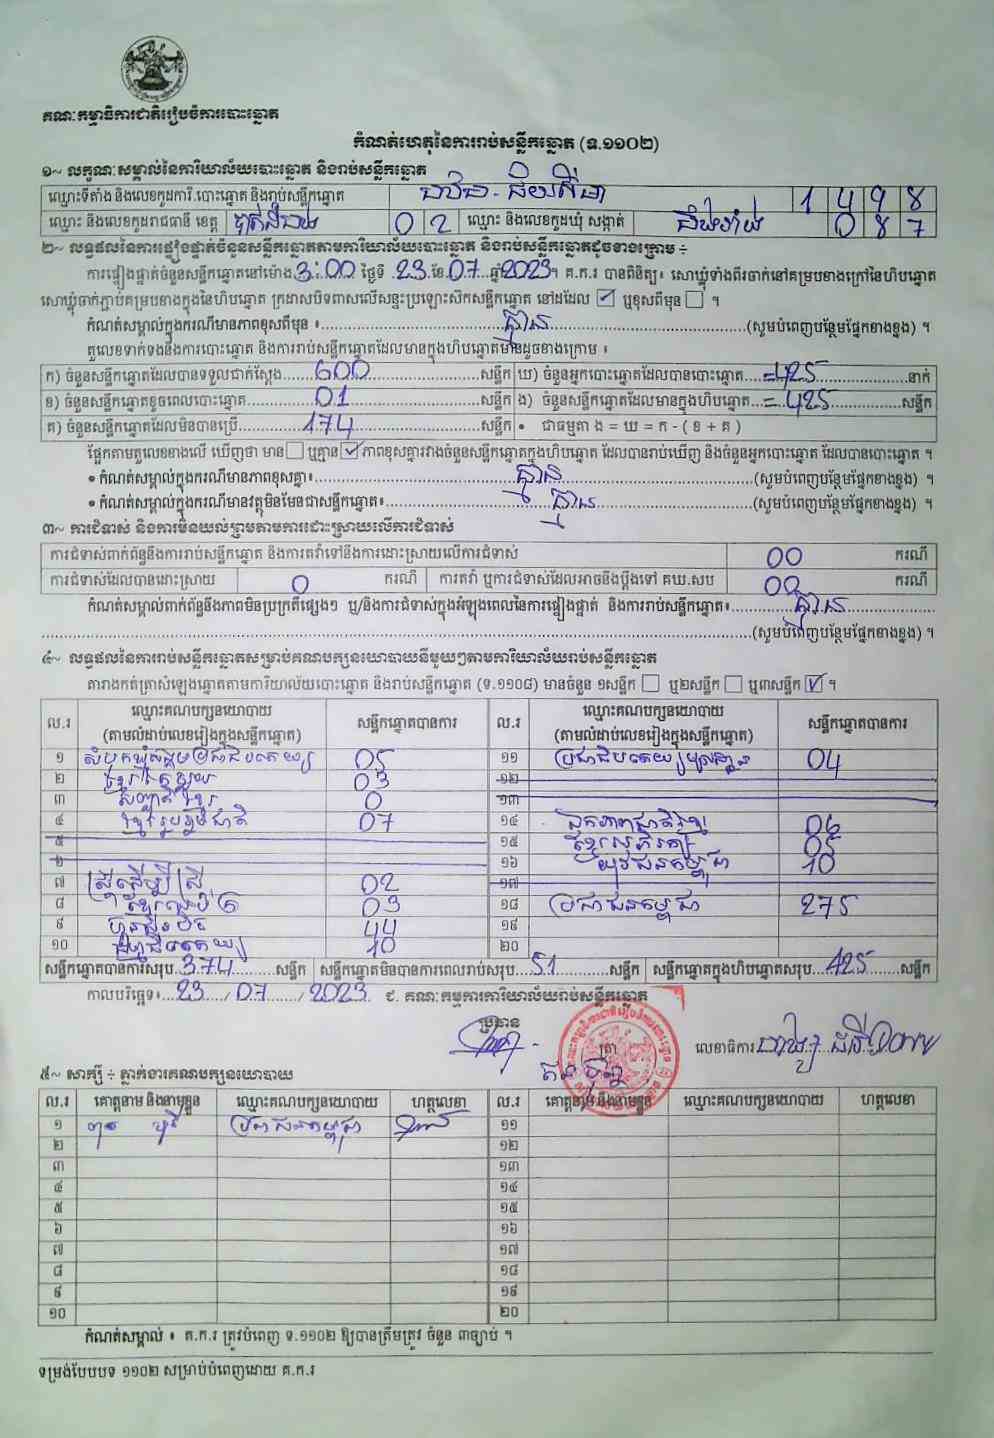 គណៈកម្មាធិការជាតិរៀបចំការបោះឆ្នោត
កំណត់ហេតុនៃការរាប់សន្លឹកឆ្នោត (ទ.១១០២)
១~ លក្ខណៈសម្គាល់នៃការិយាល័យបោះឆ្នោត និងរាប់សន្លឹកឆ្នោត
ឈ្មោះទីតាំង និងលេខកូដការិ.បោះឆ្នោត និងរាប់សន្លឹកឆ្នោត 1 4 9 8
ឈ្មោះ និងលេខកូដរាជធានី ខេត្ត បាត់ដំបង 0 2 ឈ្មោះ និងលេខកូដឃុំ សង្កាត់ 0 8 7
២~ លទ្ធផលនៃការផ្ទៀងផ្ទាត់ចំនួនសន្លឹកឆ្នោតតាមការិយាល័យបោះឆ្នោត និងរាប់សន្លឹកឆ្នោតដូចខាងក្រោម ÷
ការផ្ទៀងផ្ទាត់ចំនួនសន្លឹកឆ្នោតនៅម៉ោង 3:00 ថ្ងៃទី 23 ខែ 07 ឆ្នាំ 2023។ គ.ក.រ បានពិនិត្យ៖ សោឃ្លុំទាំងពីរចាក់នៅគម្របខាងក្រៅនៃហិបឆ្នោត
សោឃ្លុំចាក់ភ្ជាប់គម្របខាងក្នុងនៃហិបឆ្នោត ក្រដាសបិទពាសលើសន្ទះប្រឡោះសិកសន្លឹកឆ្នោត នៅដដែល ☑ ឬខុសពីមុន ☐ ។
កំណត់សម្គាល់ក្នុងករណីមានភាពខុសពីមុន ៖ គ្មាន (សូមបំពេញបន្ថែមផ្នែកខាងខ្នង) ។
តួលេខទាក់ទងនឹងការបោះឆ្នោត និងការរាប់សន្លឹកឆ្នោតដែលមានក្នុងហិបឆ្នោតមានដូចខាងក្រោម ៖
ក) ចំនួនសន្លឹកឆ្នោតដែលបានទទួលជាក់ស្តែង 600 សន្លឹក ឃ) ចំនួនអ្នកបោះឆ្នោតដែលបានបោះឆ្នោត =425 នាក់
ខ) ចំនួនសន្លឹកឆ្នោតខូចពេលបោះឆ្នោត 01 សន្លឹក ង) ចំនួនសន្លឹកឆ្នោតដែលមានក្នុងហិបឆ្នោត = 425 សន្លឹក
គ) ចំនួនសន្លឹកឆ្នោតដែលមិនបានប្រើ 174 សន្លឹក • ជាធម្មតា ង = ឃ = ក - ( ខ + គ )
ផ្អែកតាមតួលេខខាងលើ ឃើញថា មាន ☐ ឬគ្មាន ☑ ភាពខុសគ្នារវាងចំនួនសន្លឹកឆ្នោតក្នុងហិបឆ្នោត ដែលបានរាប់ឃើញ និងចំនួនអ្នកបោះឆ្នោត ដែលបានបោះឆ្នោត ។
• កំណត់សម្គាល់ក្នុងករណីមានភាពខុសគ្នា៖ គ្មាន (សូមបំពេញបន្ថែមផ្នែកខាងខ្នង) ។
• កំណត់សម្គាល់ក្នុងករណីមានវត្ថុមិនមែនជាសន្លឹកឆ្នោត៖ គ្មាន (សូមបំពេញបន្ថែមផ្នែកខាងខ្នង) ។
៣~ ការជំទាស់ និងការមិនយល់ព្រមតាមការដោះស្រាយលើការជំទាស់
ការជំទាស់ពាក់ព័ន្ធនឹងការរាប់សន្លឹកឆ្នោត និងការតវ៉ាទៅនឹងការដោះស្រាយលើការជំទាស់ 00 ករណី
ការជំទាស់ដែលបានដោះស្រាយ 0 ករណី ការតវ៉ា ឬការជំទាស់ដែលអាចនឹងប្តឹងទៅ គឃ.សប 00 ករណី
កំណត់សម្គាល់ពាក់ព័ន្ធនឹងភាពមិនប្រក្រតីផ្សេងៗ ឬ/និងការជំទាស់ក្នុងអំឡុងពេលនៃការផ្ទៀងផ្ទាត់ និងការរាប់សន្លឹកឆ្នោត៖ គ្មាន
(សូមបំពេញបន្ថែមផ្នែកខាងខ្នង) ។
៤~ លទ្ធផលនៃការរាប់សន្លឹកឆ្នោតសម្រាប់គណបក្សនយោបាយនីមួយៗតាមការិយាល័យរាប់សន្លឹកឆ្នោត
តារាងកត់ត្រាសំឡេងឆ្នោតតាមការិយាល័យបោះឆ្នោត និងរាប់សន្លឹកឆ្នោត (ទ.១១០៨) មានចំនួន ១សន្លឹក ☐ ឬ២សន្លឹក ☐ ឬ៣សន្លឹក ☑ ។
ល.រ ឈ្មោះគណបក្សនយោបាយ (តាមលំដាប់លេខរៀងក្នុងសន្លឹកឆ្នោត) សន្លឹកឆ្នោតបានការ ល.រ ឈ្មោះគណបក្សនយោបាយ (តាមលំដាប់លេខរៀងក្នុងសន្លឹកឆ្នោត) សន្លឹកឆ្នោតបានការ
១ សំបុកឃ្មុំសង្គមប្រជាធិបតេយ្យ 05 ១១ ប្រជាធិបតេយ្យមូលដ្ឋាន 04
២ 03 ១២
៣ 0 ១៣
៤ ខ្មែររួបរួមជាតិ 07 ១៤ ឯកភាពជាតិខ្មែរ 06
៥ ១៥ 05
៦ ១៦ យុវជនកម្ពុជា 10
៧ ស្ត្រីដើម្បីស្ត្រី 02 ១៧
៨ 03 ១៨ ប្រជាជនកម្ពុជា 275
៩ ហ្វ៊ុនស៊ិនប៉ិច 44 ១៩
១០ 10 ២០
សន្លឹកឆ្នោតបានការសរុប 374 សន្លឹក សន្លឹកឆ្នោតមិនបានការពេលរាប់សរុប 51 សន្លឹក សន្លឹកឆ្នោតក្នុងហិបឆ្នោតសរុប 425 សន្លឹក
កាលបរិច្ឆេទ៖ 23 / 07 / 2023 ជ. គណៈកម្មការការិយាល័យរាប់សន្លឹកឆ្នោត
ប្រធាន ត្រា លេខាធិការ
៥~ សាក្សី ÷ ភ្នាក់ងារគណបក្សនយោបាយ
ល.រ គោត្តនាម និងនាមខ្លួន ឈ្មោះគណបក្សនយោបាយ ហត្ថលេខា ល.រ គោត្តនាម និងនាមខ្លួន ឈ្មោះគណបក្សនយោបាយ ហត្ថលេខា
១ ប្រជាជនកម្ពុជា ១១
២ ១២
៣ ១៣
៤ ១៤
៥ ១៥
៦ ១៦
៧ ១៧
៨ ១៨
៩ ១៩
១០ ២០
កំណត់សម្គាល់ ៖ គ.ក.រ ត្រូវបំពេញ ទ.១១០២ ឱ្យបានត្រឹមត្រូវ ចំនួន ៣ច្បាប់ ។
ទម្រង់បែបបទ ១១០២ សម្រាប់បំពេញដោយ គ.ក.រ